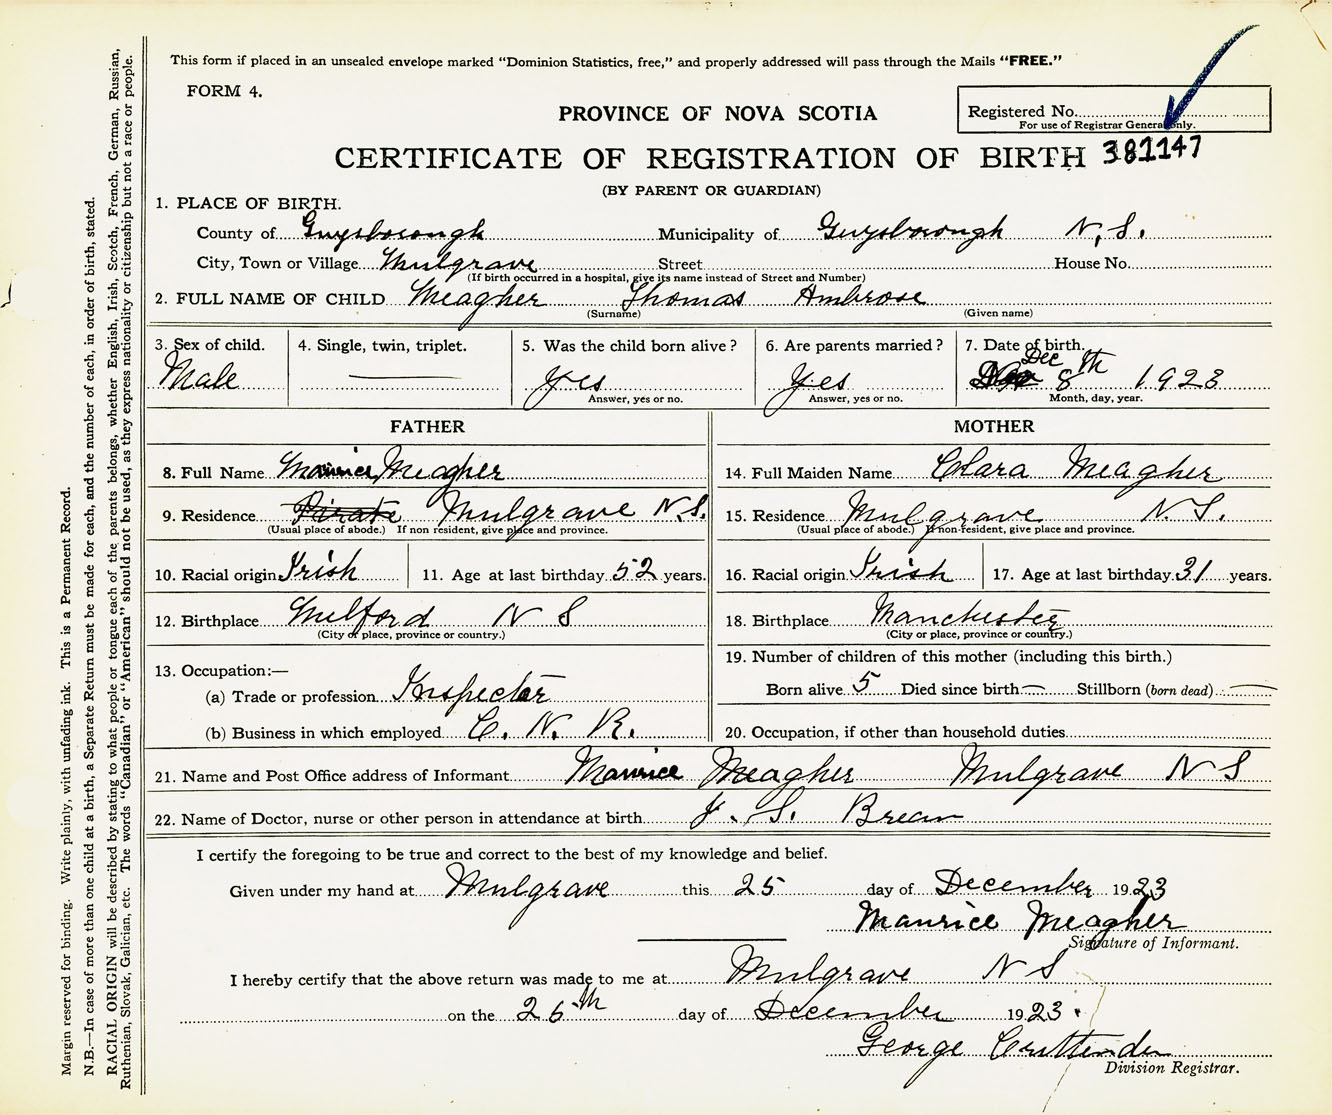 This form if placed in an unsealed envelope marked "Dominion Statistics, free," and properly addressed will pass through the Mails "FREE."
FORM 4.
PROVINCE OF NOVA SCOTIA
Registered No.
For use of Registrar General only.
CERTIFICATE OF REGISTRATION OF BIRTH 381147
(BY PARENT OR GUARDIAN)
1. PLACE OF BIRTH.
County of Guysborough Municipality of Guysborough N.S.
City, Town or Village Mulgrave Street House No.
(If birth occurred in a hospital, give its name instead of Street and Number)
2. FULL NAME OF CHILD Meagher Thomas Ambrose
(Surname) (Given name)
3. Sex of child. 4. Single, twin, triplet. 5. Was the child born alive? 6. Are parents married? 7. Date of birth.
Male Yes Yes Dec 8th 1923
Answer, yes or no. Answer, yes or no. Month, day, year.
FATHER MOTHER
8. Full Name Maurice Meagher 14. Full Maiden Name Clara Meagher
9. Residence Mulgrave N.S. 15. Residence Mulgrave N.S.
(Usual place of abode.) If non resident, give place and province. (Usual place of abode.) If non-resident, give place and province.
10. Racial origin Irish 11. Age at last birthday 52 years. 16. Racial origin Irish 17. Age at last birthday 31 years.
12. Birthplace Milford N S 18. Birthplace Manchester
(City or place, province or country.) (City or place, province or country.)
13. Occupation:— 19. Number of children of this mother (including this birth.)
(a) Trade or profession Inspector Born alive 5 Died since birth — Stillborn (born dead) —
(b) Business in which employed C. N. R. 20. Occupation, if other than household duties
21. Name and Post Office address of Informant Maurice Meagher Mulgrave N S
22. Name of Doctor, nurse or other person in attendance at birth J. S. Brean
I certify the foregoing to be true and correct to the best of my knowledge and belief.
Given under my hand at Mulgrave this 25 day of December 1923
Maurice Meagher
Signature of Informant.
I hereby certify that the above return was made to me at Mulgrave N S
on the 26th day of December 1923.
George Cruttenden
Division Registrar.
Margin reserved for binding. Write plainly, with unfading ink. This is a Permanent Record.
N.B.—In case of more than one child at a birth, a Separate Return must be made for each, and the number of each, in order of birth, stated.
RACIAL ORIGIN will be described by stating to what people or tongue each of the parents belongs, whether English, Irish, Scotch, French, German, Russian,
Ruthenian, Slovak, Galician, etc. The words "Canadian" or "American" should not be used, as they express nationality or citizenship but not a race or people.